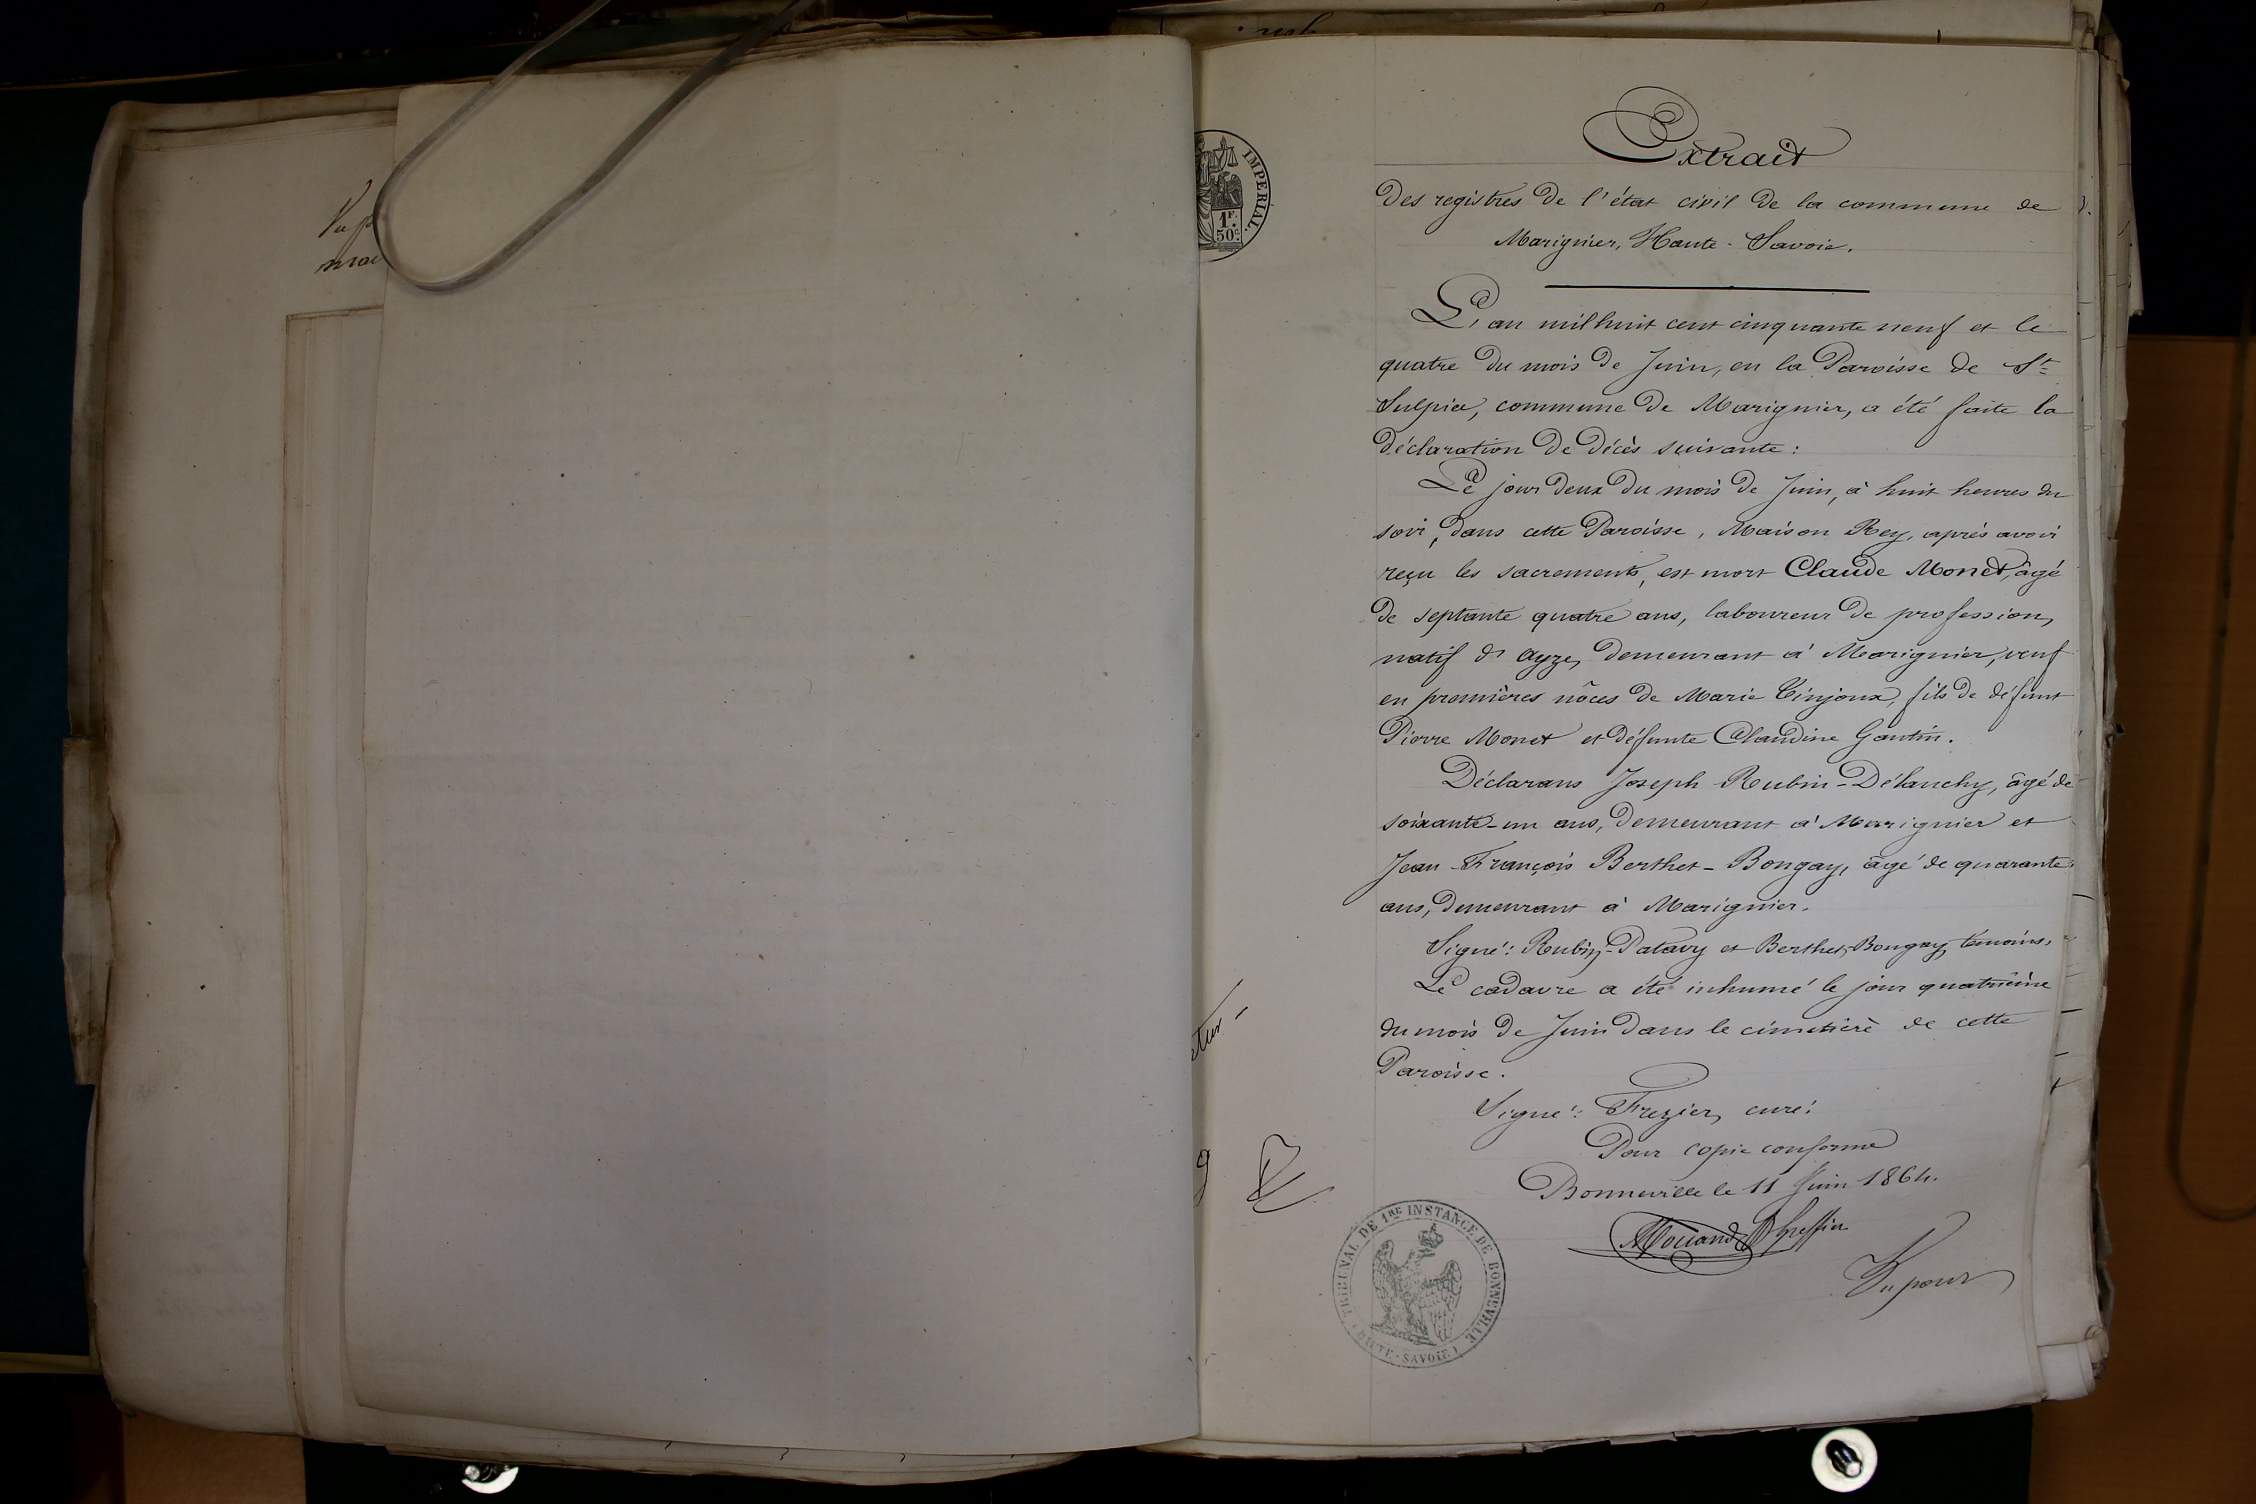 Vu p
mai
IMPERIAL.
1F.
50c
Extrait
des registres de l'état civil de la commune de
Marignier, Haute-Savoie.
L'an mil huit cent cinquante neuf et le
quatre du mois de Juin, en la Paroisse de St
Sulpice, commune de Marignier, a été faite la
déclaration de décès suivante :
Le jour deux du mois de Juin, à huit heures du
soir, dans cette Paroisse, Maison Rey, après avoir
reçu les sacrements, est mort Claude Monet, âgé
de septante quatre ans, laboureur de profession,
natif d'Ayze, demeurant à Marignier, veuf
en premières nôces de Marie Tinjoux, fils de défunt
Pierre Monet et défunte Claudine Gantin.
Déclarans Joseph Rubin-Délanchy, âgé de
soixante-un ans, demeurant à Marignier et
Jean-François Berthet-Bongay, âgé de quarante
ans, demeurant à Marignier.
Signé : Rubin-Datavy et Berthet-Bongay, témoins,
Le cadavre a été inhumé le jour quatrième
du mois de Juin dans le cimetière de cette
Paroisse.
Signé : Frezier, curé.
Pour copie conforme
Bonneville le 11 Juin 1864.
greffier
Vu pour
TRIBUNAL DE 1RE INSTANCE DE BONNEVILLE
(HAUTE-SAVOIE)